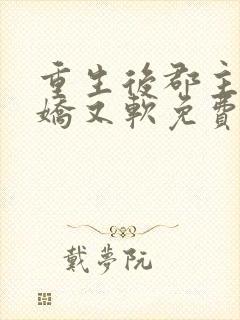 重生後郡主
嬌又軟免費
戴夢阮